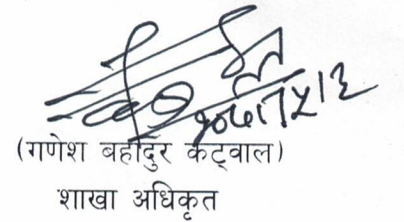 (गणेश बहादुर कट्वाल)
शाखा अधिकृत